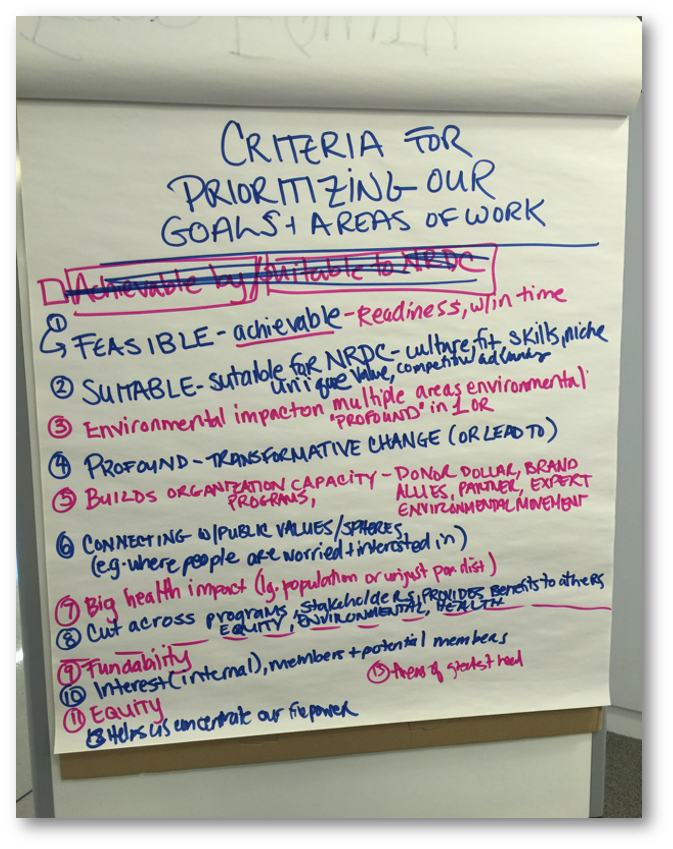 EQUITY
CRITERIA FOR
PRIORITIZING OUR
GOALS + AREAS OF WORK
Achievable by / Suitable to NRDC
① FEASIBLE - achievable - Readiness, w/in time
② SUITABLE - suitable for NRDC - culture fit, skills, niche
unique value, competitive advantage
③ Environmental impact on multiple areas environmental
"PROFOUND" in 1 OR
④ PROFOUND - TRANSFORMATIVE CHANGE (OR LEAD TO)
⑤ BUILDS ORGANIZATION CAPACITY - DONOR DOLLAR, BRAND
PROGRAMS, ALLIES, PARTNER, EXPERT
ENVIRONMENTAL MOVEMENT
⑥ CONNECTING W/PUBLIC VALUES/SPHERES
(e.g. where people are worried + interested in)
⑦ Big health impact (lg. population or unjust)
⑧ Cut across programs, stakeholders, PROVIDES Benefits to others
EQUITY, ENVIRONMENTAL, HEALTH
⑨ Fundability
⑩ Interest (internal), members + potential members
⑬ Areas of greatest need
⑪ EQUITY
Helps us concentrate our firepower